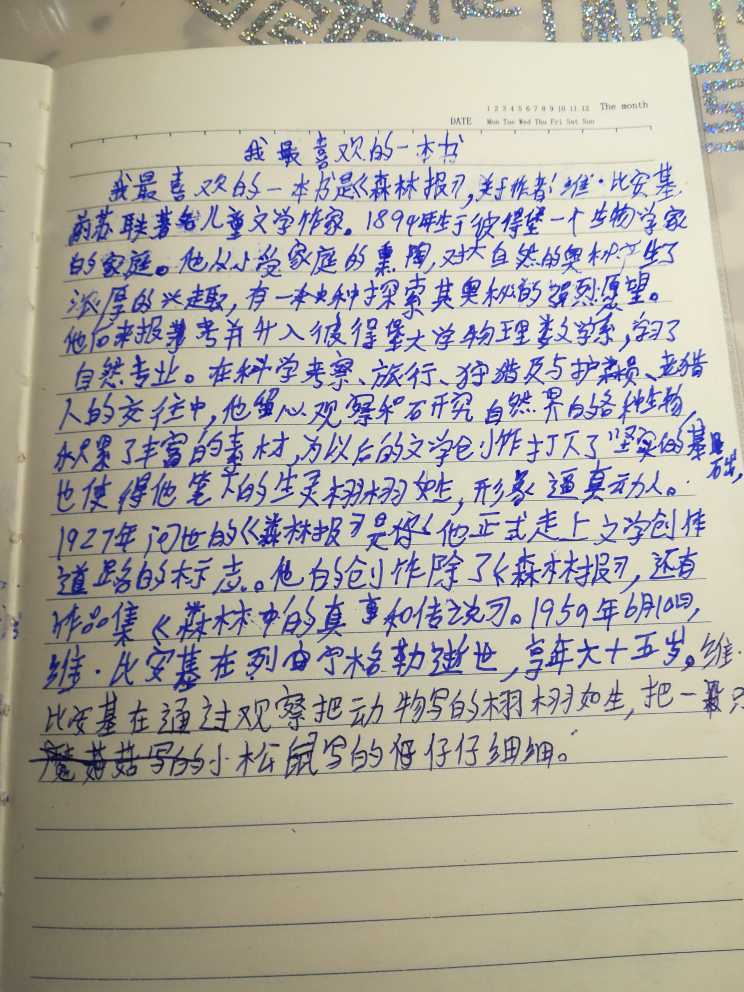 1 2 3 4 5 6 7 8 9 10 11 12 The month
DATE Mon Tue Wed Thu Fri Sat Sun
我最喜欢的一本书
我最喜欢的一本书是《森林报》,关于作者:维·比安基,
前苏联著名儿童文学作家。1894年生于彼得堡一个生物学家
的家庭。他从小受家庭的熏陶,对大自然的奥秘产生了
浓厚的兴趣,有一种探索其奥秘的强烈愿望。
他后来报考并升入彼得堡大学物理数学系,学习了
自然专业。在科学考察、旅行、狩猎及与护林员、老猎
人的交往中,他留心观察和研究自然界的各种生物,
积累了丰富的素材,为以后的文学创作打下了坚实的基础,
也使得他笔下的生灵栩栩如生,形象逼真动人。
1927年问世的《森林报》是他正式走上文学创作
道路的标志。他的创作除了《森林报》,还有
作品集《森林中的真事和传说》。1959年6月10日,
维·比安基在列宁格勒逝世,享年六十五岁。维·
比安基在通过观察把动物写的栩栩如生,把一只
小松鼠写的仔仔细细。